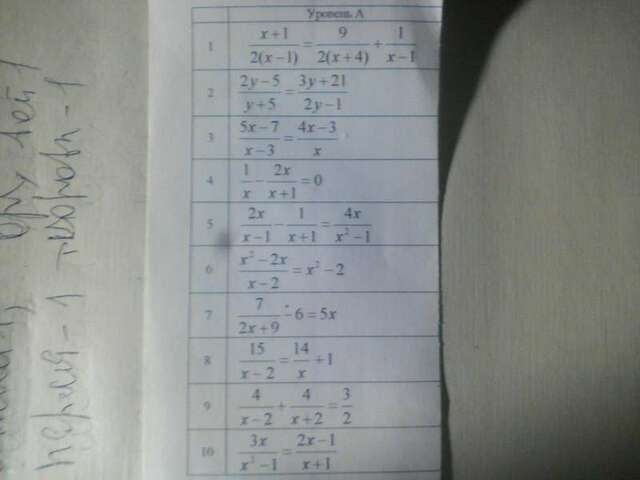 Уровень А
1 (x+1)/(2(x−1)) = 9/(2(x+4)) + 1/(x−1)
2 (2y−5)/(y+5) = (3y+21)/(2y−1)
3 (5x−7)/(x−3) = (4x−3)/x
4 1/x − 2x/(x+1) = 0
5 2x/(x−1) − 1/(x+1) = 4x/(x²−1)
6 (x²−2x)/(x−2) = x²−2
7 7/(2x+9) − 6 = 5x
8 15/(x−2) = 14/x + 1
9 4/(x−2) + 4/(x+2) = 3/2
10 3x/(x²−1) = (2x−1)/(x+1)